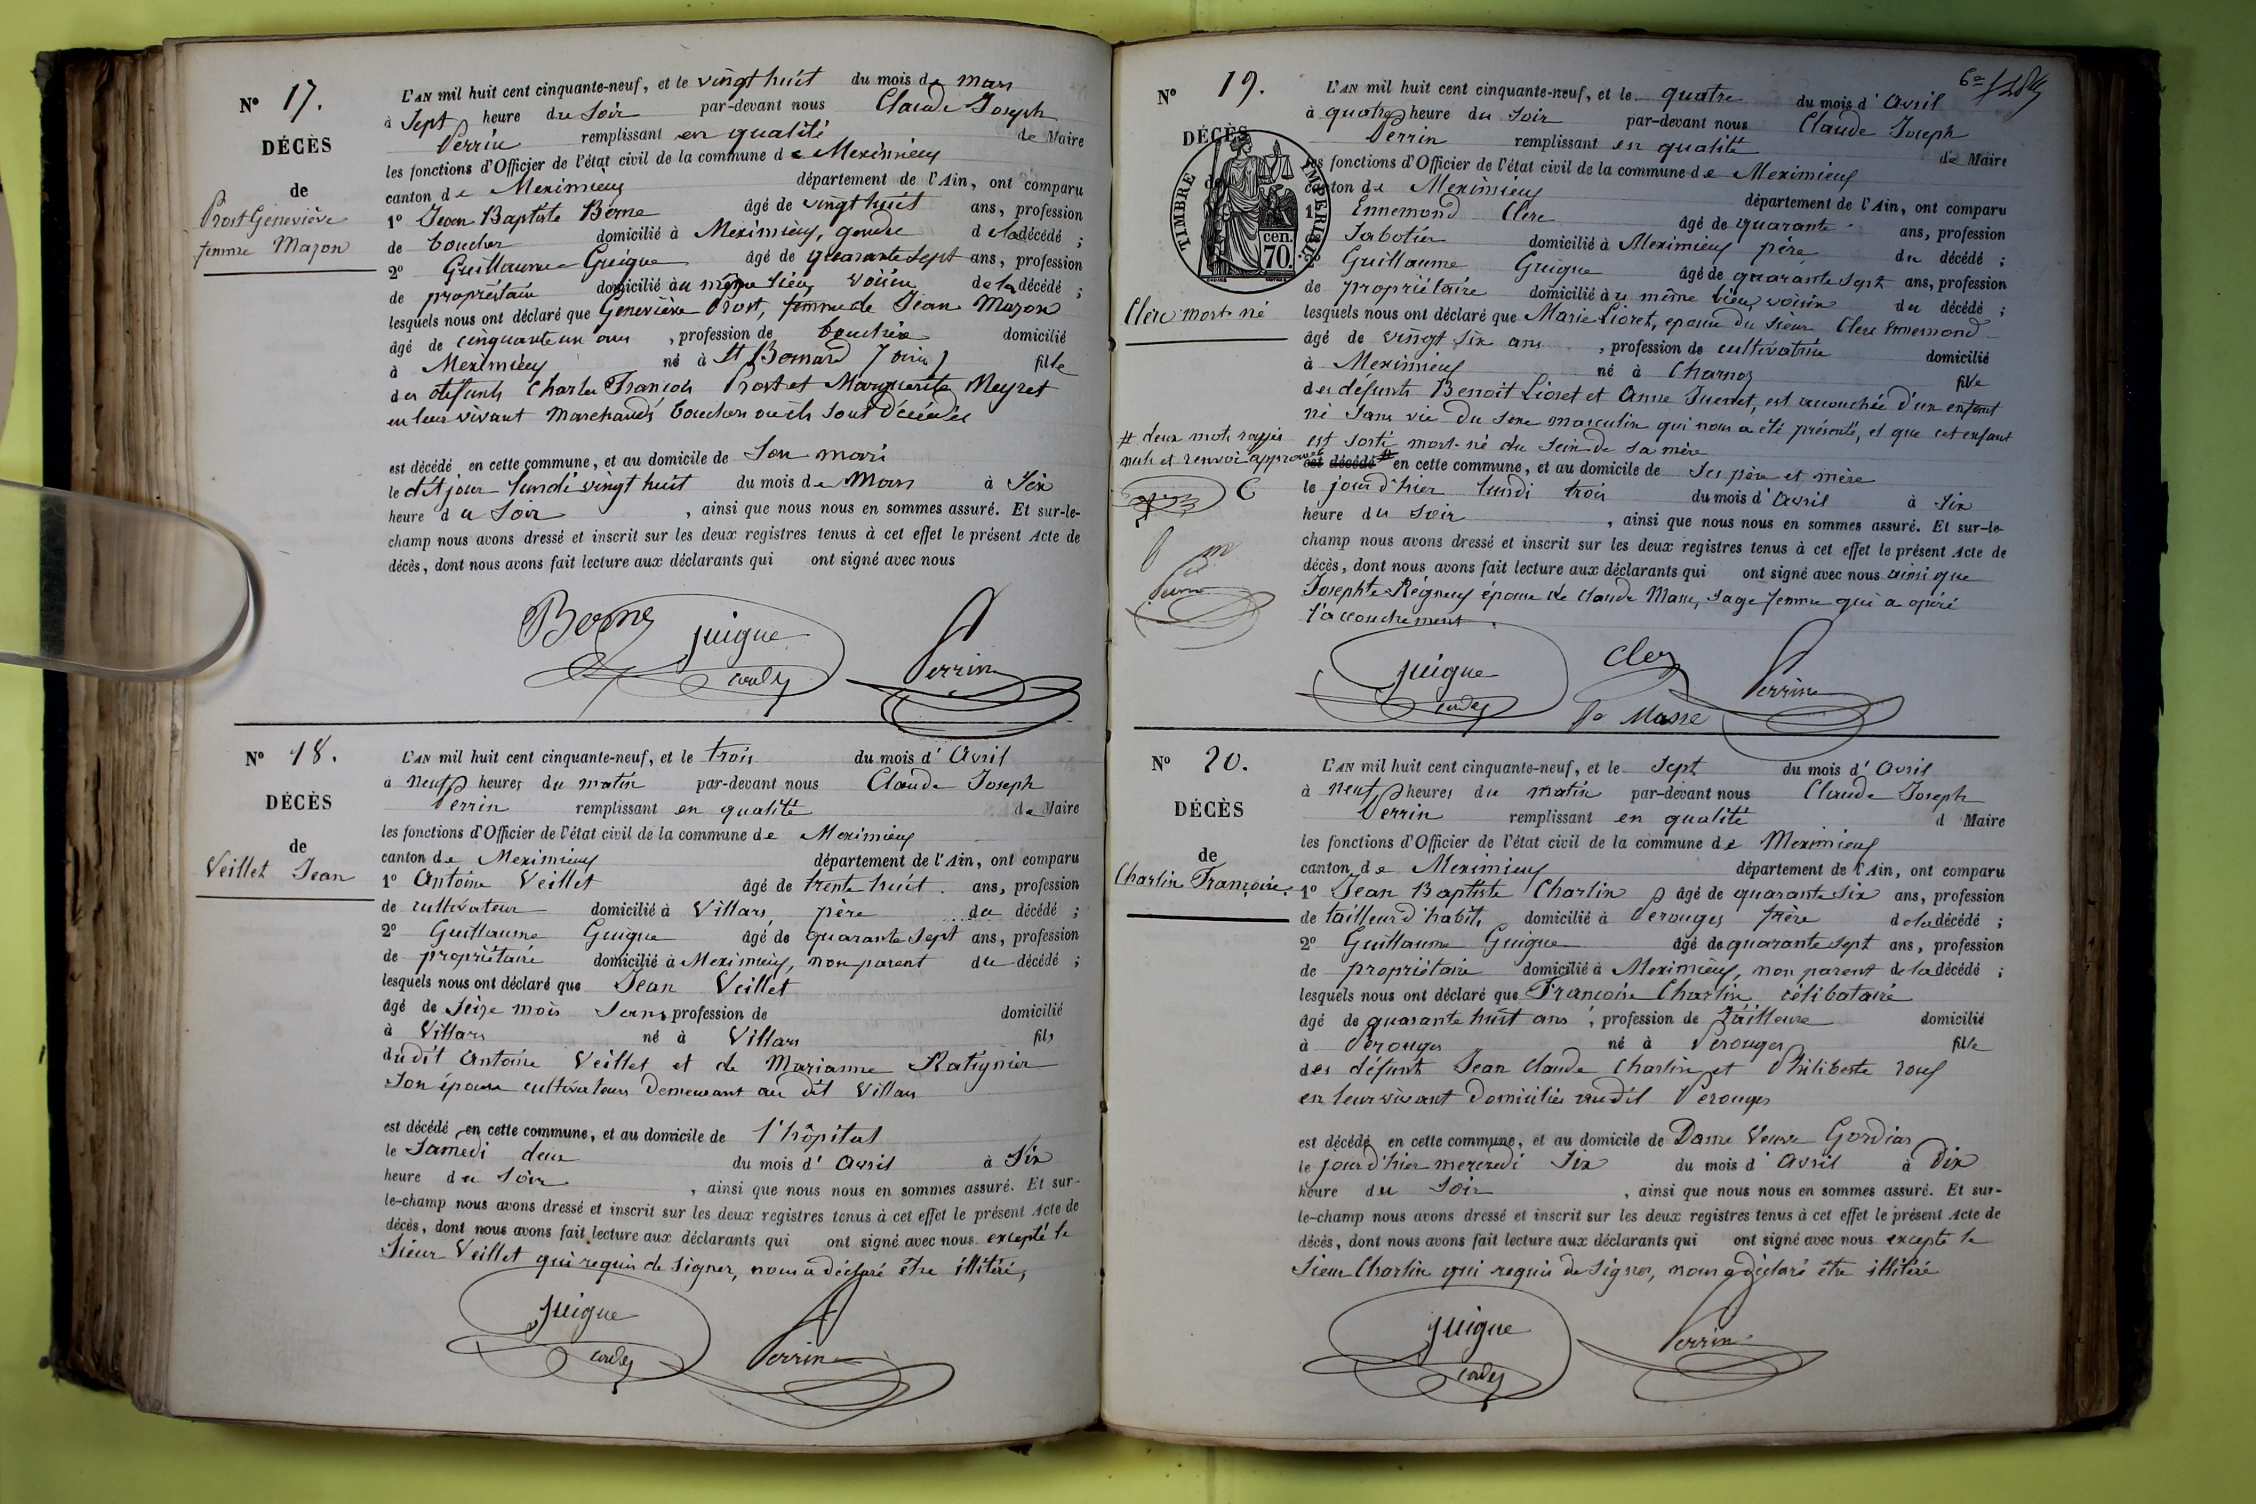 N° 17.
DÉCÈS
de
Prost Geneviève
femme Mazon
L'AN mil huit cent cinquante-neuf, et le vingt huit du mois de mars
à Sept heure du Soir par-devant nous Claude Joseph
Perrin remplissant en qualité de Maire
les fonctions d'Officier de l'état civil de la commune de Meximieux
canton de Meximieux département de l'Ain, ont comparu
1° Jean Baptiste Berne âgé de vingt huit ans, profession
de boucher domicilié à Meximieux, gendre de la décédé ;
2° Guillaume Guigue âgé de quarante sept ans, profession
de propriétaire domicilié au même lieu, voisin de la décédé ;
lesquels nous ont déclaré que Geneviève Prost, femme de Jean Mazon
âgé de cinquante un ans, profession de bouchère domicilié
à Meximieux né à St Bernard (ain) fille
des défunts Charles François Prost et Marguerite Meyret
en leur vivant marchands bouchers où ils sont décédés
est décédé en cette commune, et au domicile de Son mari
le dit jour lundi vingt huit du mois de Mars à Six
heure du Soir, ainsi que nous nous en sommes assuré. Et sur-le-
champ nous avons dressé et inscrit sur les deux registres tenus à cet effet le présent Acte de
décès, dont nous avons fait lecture aux déclarants qui ont signé avec nous
Berne Guigue Perrin
N° 18.
DÉCÈS
de
Veillet Jean
L'AN mil huit cent cinquante-neuf, et le trois du mois d'Avril
à neuf heures du matin par-devant nous Claude Joseph
Perrin remplissant en qualité de Maire
les fonctions d'Officier de l'état civil de la commune de Meximieux
canton de Meximieux département de l'Ain, ont comparu
1° Antoine Veillet âgé de trente huit ans, profession
de cultivateur domicilié à Villars, père du décédé ;
2° Guillaume Guigue âgé de quarante sept ans, profession
de propriétaire domicilié à Meximieux, non parent du décédé ;
lesquels nous ont déclaré que Jean Veillet
âgé de Seize mois Sans profession de domicilié
à Villars né à Villars fils
dudit Antoine Veillet et de Marianne Ratignier
Son épouse cultivateurs demeurant au dit Villars
est décédé en cette commune, et au domicile de l'hôpital
le Samedi deux du mois d'Avril à Six
heure du Soir, ainsi que nous nous en sommes assuré. Et sur-
le-champ nous avons dressé et inscrit sur les deux registres tenus à cet effet le présent Acte de
décès, dont nous avons fait lecture aux déclarants qui ont signé avec nous excepté le
Sieur Veillet qui requis de signer, nous a déclaré être illitéré,
Guigue Perrin
N° 19.
DÉCÈS
de
TIMBRE IMPERIAL
cen. 70.
Clerc mort-né
L'AN mil huit cent cinquante-neuf, et le quatre du mois d'Avril
à quatre heure du Soir par-devant nous Claude Joseph
Perrin remplissant en qualité de Maire
les fonctions d'Officier de l'état civil de la commune de Meximieux
canton de Meximieux département de l'Ain, ont comparu
1° Ennemond Clerc âgé de quarante ans, profession
Sabotier domicilié à Meximieux père du décédé ;
Guillaume Guigue âgé de quarante Sept ans, profession
de propriétaire domicilié au même lieu, voisin du décédé ;
lesquels nous ont déclaré que Marie Lioret, épouse du Sieur Clerc Ennemond
âgé de vingt Six ans, profession de cultivatrice domicilié
à Meximieux né à Charnoz fille
des défunts Benoit Lioret et Anne Juenet, est accouchée d'un enfant
né Sans vie du Sexe masculin qui nous a été présenté, et que cet enfant
est sorti mort-né du Sein de Sa mère
est décédé # en cette commune, et au domicile de Ses père et mère
le jour d'hier lundi trois du mois d'Avril à Six
heure du Soir, ainsi que nous nous en sommes assuré. Et sur-le-
champ nous avons dressé et inscrit sur les deux registres tenus à cet effet le présent Acte de
décès, dont nous avons fait lecture aux déclarants qui ont signé avec nous ainsi que
Josephte Régneux épouse de Claude Masse, Sage femme qui a opéré
l'accouchement.
# deux mots rayés
nuls et renvoi approuvé
C
Guigue Clerc Perrin
Masse
N° 20.
DÉCÈS
de
Charlin Françoise
L'AN mil huit cent cinquante-neuf, et le Sept du mois d'Avril
à neuf heures du matin par-devant nous Claude Joseph
Perrin remplissant en qualité d Maire
les fonctions d'Officier de l'état civil de la commune de Meximieux
canton de Meximieux département de l'Ain, ont comparu
1° Jean Baptiste Charlin âgé de quarante Six ans, profession
de tailleur d'habits domicilié à Perouges frère de la décédé ;
2° Guillaume Guigue âgé de quarante sept ans, profession
de propriétaire domicilié à Meximieux, non parent de la décédé ;
lesquels nous ont déclaré que Françoise Charlin, célibataire
âgé de quarante huit ans, profession de tailleuse domicilié
à Perouges né à Perouges fille
des défunts Jean Claude Charlin et Philiberte
en leur vivant domiciliés audit Perouges
est décédé en cette commune, et au domicile de Dame Veuve Gordias
le jour d'hier mercredi Six du mois d'Avril à Dix
heure du Soir, ainsi que nous nous en sommes assuré. Et sur-
le-champ nous avons dressé et inscrit sur les deux registres tenus à cet effet le présent Acte de
décès, dont nous avons fait lecture aux déclarants qui ont signé avec nous excepté le
Sieur Charlin qui requis de signer, nous a déclaré être illitéré
Guigue Perrin